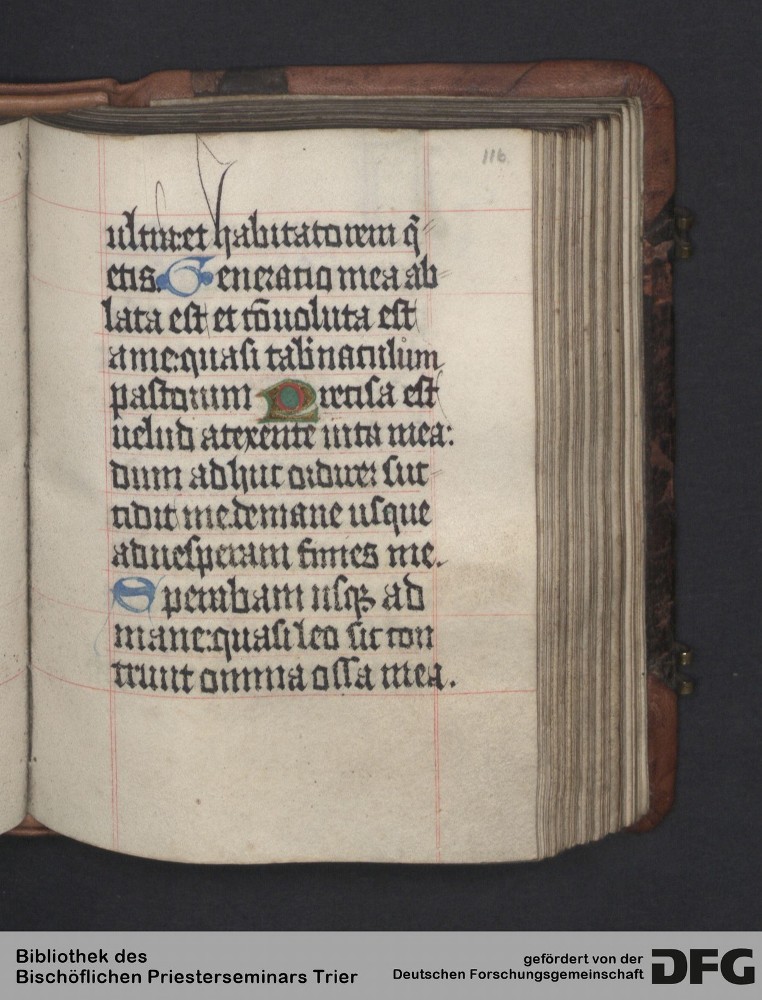 116.
ultra: et habitatorem q̄
etis. Generatio mea ab
lata est et cōuoluta est
a me: quasi tabernaculum
pastorum Precisa est
uelud a texente uita mea:
dum adhuc ordirer suc
cidit me. de mane usque
ad uesperam finies me.
Sperabam usqꝫ ad
mane: quasi leo sic con
triuit omnia ossa mea.
Bibliothek des
Bischöflichen Priesterseminars Trier
gefördert von der
Deutschen Forschungsgemeinschaft
DFG